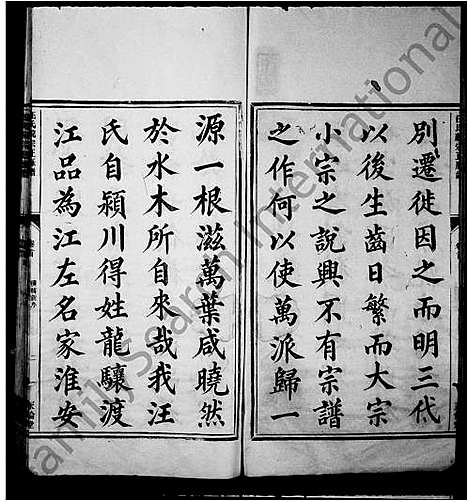 別遷徙因之而明三代
以後生齒日繁而大宗
小宗之說興不有宗譜
之作何以使萬派歸一
源一根滋萬葉咸曉然
於水木所自來哉我汪
氏自潁川得姓龍驤渡
江品為江左名家淮安
Family Search International